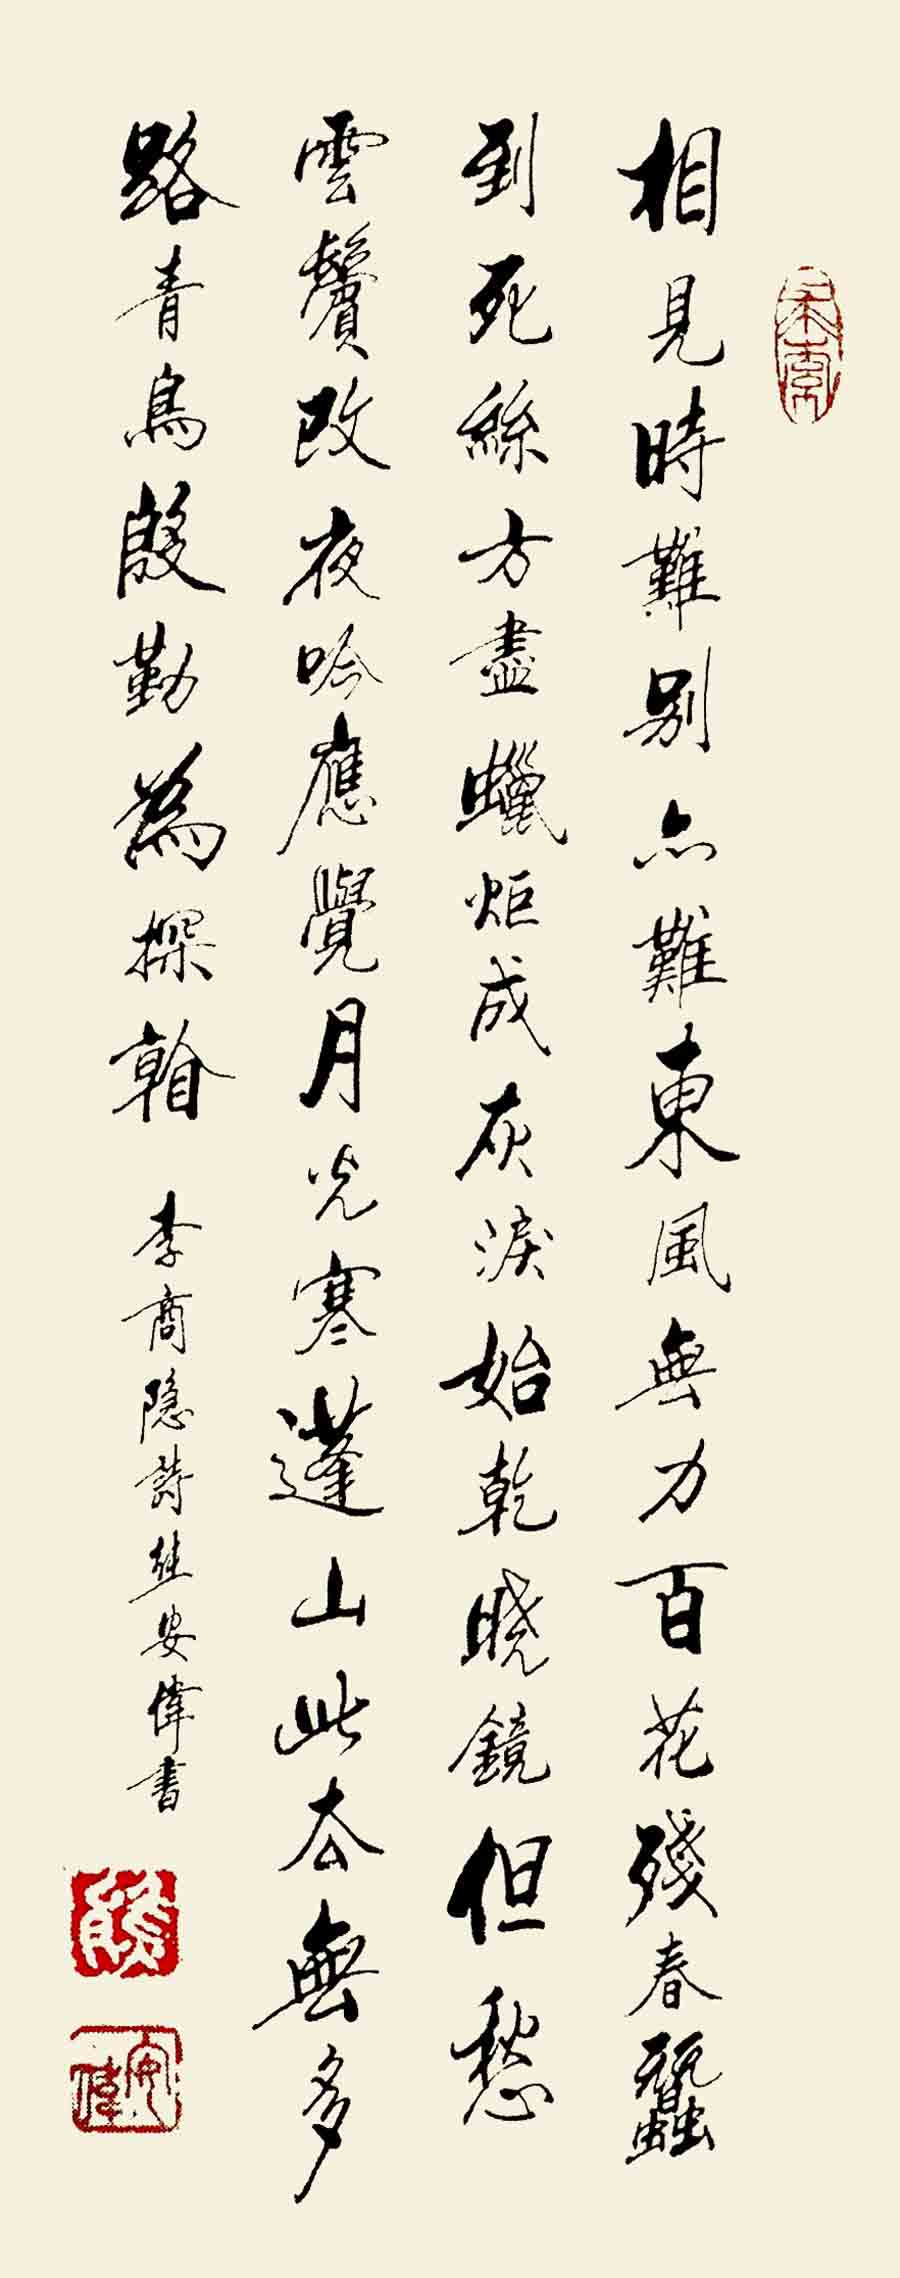 相見時難別亦難東風無力百花殘春蠶
到死絲方盡蠟炬成灰淚始乾曉鏡但愁
雲鬢改夜吟應覺月光寒蓬山此去無多
路青鳥殷勤為探看
李商隐詩熊安偉書
熊
安偉